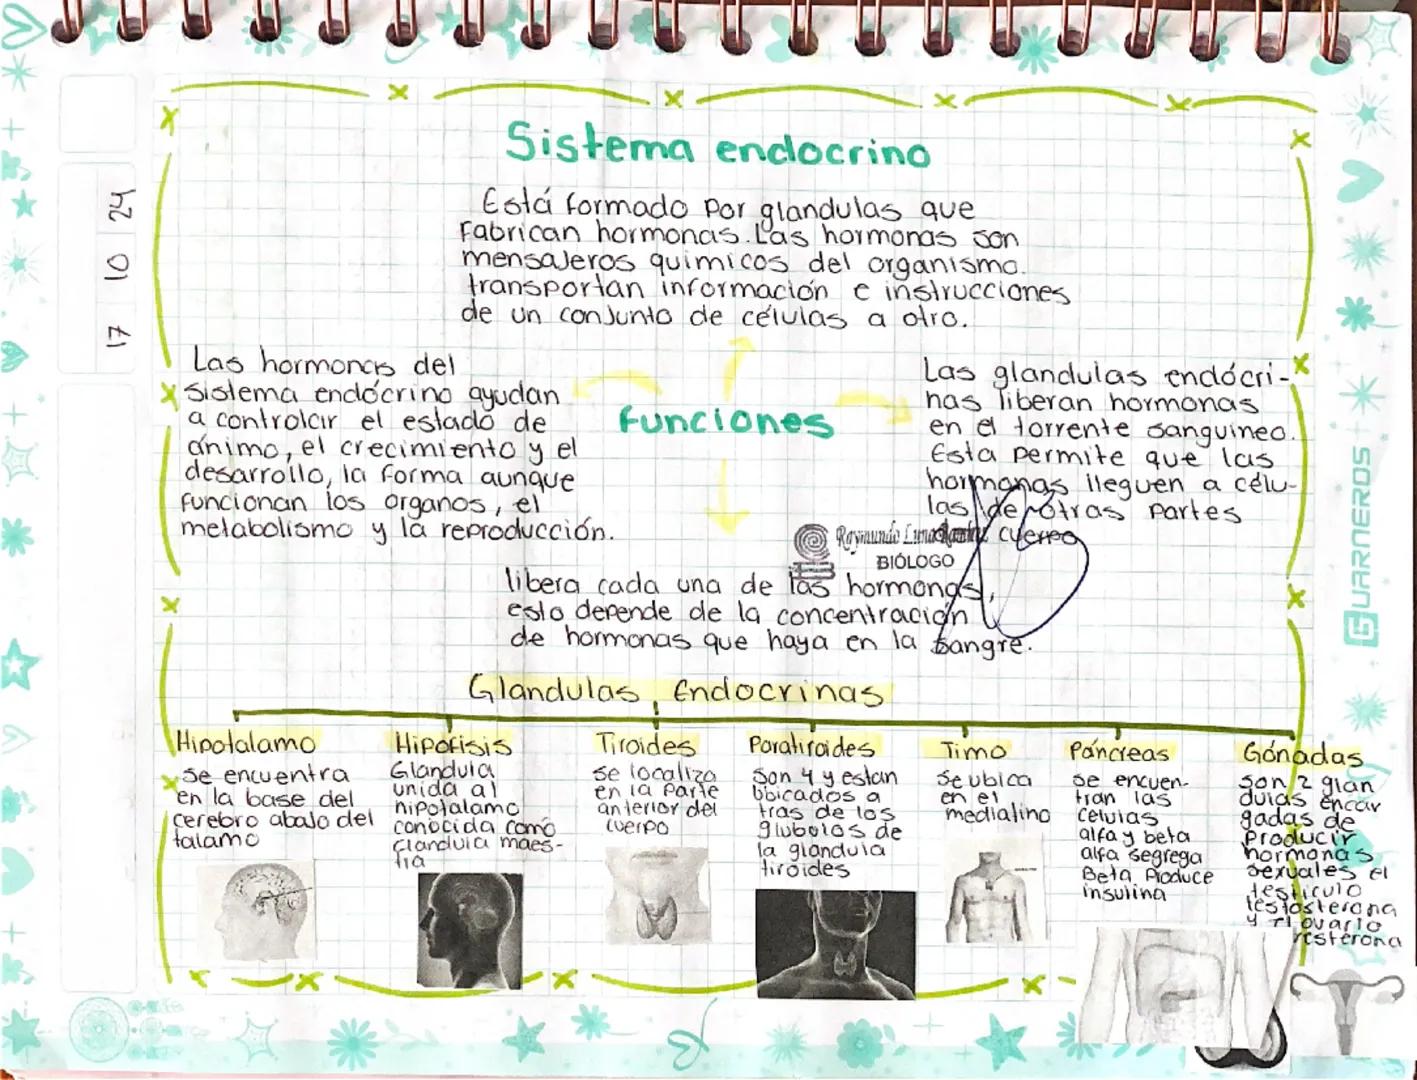 17 10 24
Sistema endocrino
Está formado por glandulas que
fabrican hormonas. Las hormonas son
mensajeros quimicos del organismo.
transportan información e instrucciones
de un conjunto de células a otro.
Las hormonas del
sistema endócrino ayudan
a controlar el estado de
ánimo, el crecimiento y el
desarrollo, la forma aunque
funcionan los organos, el
metabolismo y la reproducción.
funciones
Las glandulas endócri-
nas liberan hormonas
en el torrente sanguineo.
Esta permite que las
hormonas lleguen a célu-
las de otras partes
cuerpo
Raymundo Luna
BIÓLOGO
libera cada una de las hormonas,
esto depende de la concentración
de hormonas que haya en la sangre.
Glandulas Endocrinas
Hipotalamo
se encuentra
en la base del
cerebro abajo del
talamo
Hipofisis
Glandula
unida al
hipotalamo
conocida como
Glandula maes-
tra
Tiroides
se localiza
en la parte
anterior del
cuerpo
Paratiroides
son 4 y estan
ubicados a
tras de los
glubolos de
la glandula
tiroides
Timo
Se ubica
en el
mediatino
Páncreas
se encuen-
tran las
celulas
alfa y beta
alfa segrega
Beta Produce
insulina
Gónadas
son 2 glan
dulas encar
gadas de
producir
hormonas
sexuales el
testiculo
testosterona
y el ovario
resterona
GUARNEROS